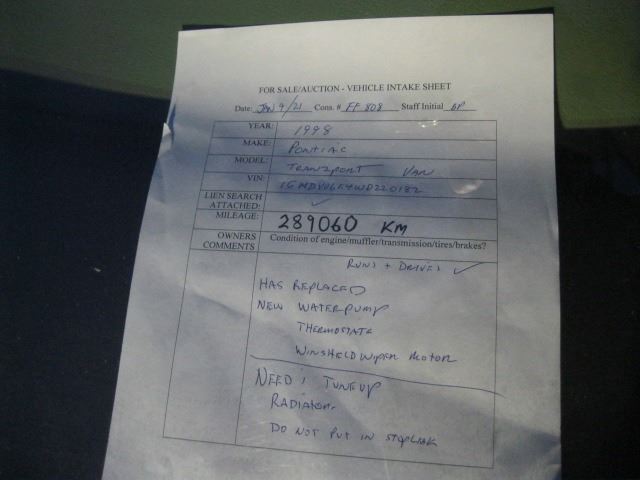 FOR SALE/AUCTION - VEHICLE INTAKE SHEET
Date: JAN 9/21 Cons. # FF 808 Staff Initial BP
YEAR: 1998
MAKE: PONTIAC
MODEL: TRANZPORT VAN
VIN:
LIEN SEARCH ATTACHED: ✓
MILEAGE: 289060 KM
OWNERS COMMENTS Condition of engine/muffler/transmission/tires/brakes?
RUNS + DRIVES ✓
HAS REPLACED
NEW WATERPUMP
THERMOSTATE
WINSHELD WIPER MOTOR
NEED'S TUNEUP
RADIATOR
DO NOT PUT IN STOPLEAK